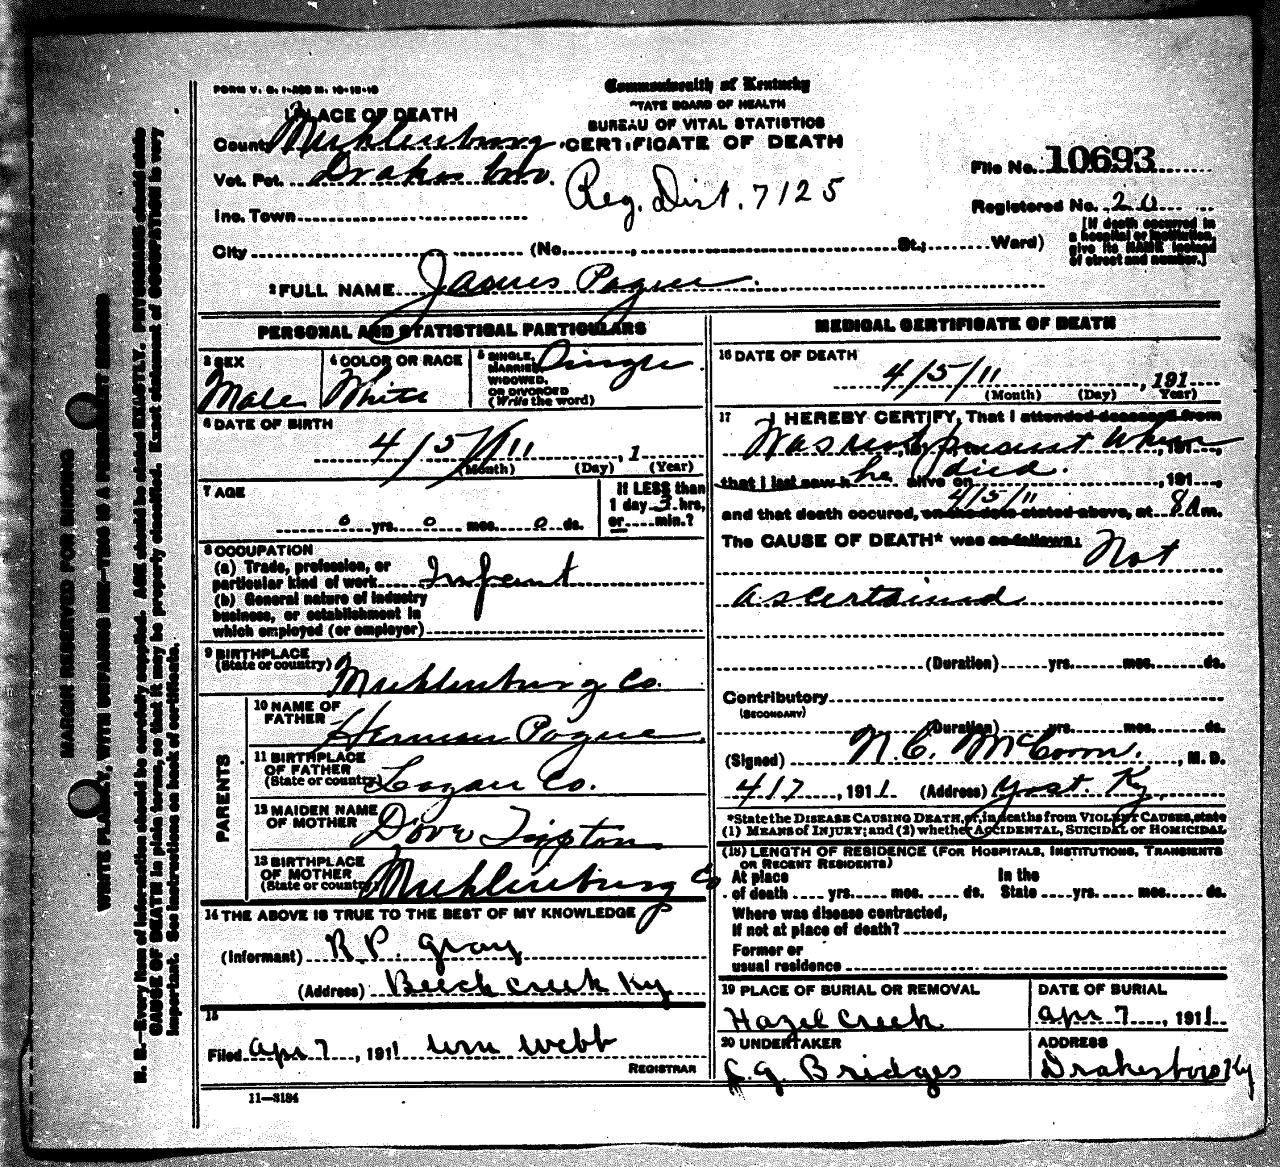 FORM V. S. 1-
Commonwealth of Kentucky
STATE BOARD OF HEALTH
BUREAU OF VITAL STATISTICS
CERTIFICATE OF DEATH
1 PLACE OF DEATH
County Muhlenburg
Vot. Pct. Drakesboro.
Reg. Dist. 7125
File No. 10693
Registered No. 20
Inc. Town
[If death occurred in
a hospital or institution,
give its NAME instead
of street and number.]
City (No. St.; Ward)
2 FULL NAME James Pogue.
PERSONAL AND STATISTICAL PARTICULARS
3 SEX
Male
4 COLOR OR RACE
White
5 SINGLE,
MARRIED,
WIDOWED,
OR DIVORCED
(Write the word)
Single.
6 DATE OF BIRTH
4/5/11, 1
(Month) (Day) (Year)
7 AGE
If LESS than
1 day 3 hrs,
or min.?
0 yrs. 0 mos. 0 ds.
8 OCCUPATION
(a) Trade, profession, or
particular kind of work Infant
(b) General nature of industry
business, or establishment in
which employed (or employer)
9 BIRTHPLACE
(State or country) Muhlenburg Co.
PARENTS
10 NAME OF
FATHER Herman Pogue.
11 BIRTHPLACE
OF FATHER
(State or country) Logan Co.
12 MAIDEN NAME
OF MOTHER Dove Tipton
13 BIRTHPLACE
OF MOTHER
(State or country) Muhlenburg Co
14 THE ABOVE IS TRUE TO THE BEST OF MY KNOWLEDGE
(Informant) R.P. Gray
(Address) Beech creek Ky
15
Filed Apr 7, 1911 Wm Webb
REGISTRAR
11—3184
MEDICAL CERTIFICATE OF DEATH
16 DATE OF DEATH
4/5/11, 191
(Month) (Day) Year)
17 I HEREBY CERTIFY, That I attended deceased from
Was not present when, 191,
that I last saw h he alive on died. , 191,
4/5/11
and that death occured, on the date stated above, at 8 A m.
The CAUSE OF DEATH* was as follows: Not
ascertained
(Duration) yrs. mos. ds.
Contributory
(SECONDARY)
(Duration) yrs. mos. ds.
(Signed) N.C. McCown., M. D.
417, 1911 (Address) Yost. Ky,
*State the DISEASE CAUSING DEATH, or, in deaths from VIOLENT CAUSES, state
(1) MEANS OF INJURY; and (2) whether ACCIDENTAL, SUICIDAL or HOMICIDAL
(18) LENGTH OF RESIDENCE (FOR HOSPITALS, INSTITUTIONS, TRANSIENTS
OR RECENT RESIDENTS)
At place In the
of death yrs. mos. ds. State yrs. mos. ds.
Where was disease contracted,
If not at place of death?
Former or
usual residence
19 PLACE OF BURIAL OR REMOVAL
Hazel Creek
DATE OF BURIAL
Apr 7, 1911
20 UNDERTAKER
C.G. Bridges
ADDRESS
Drakesboro Ky
MARGIN RESERVED FOR BINDING
WRITE PLAINLY, WITH UNFADING INK—THIS IS A PERMANENT RECORD
N. B.—Every item of information should be carefully supplied. AGE should be stated EXACTLY. PHYSICIANS should state
CAUSE OF DEATH in plain terms, so that it may be properly classified. Exact statement of OCCUPATION is very
important. See instructions on back of certificate.